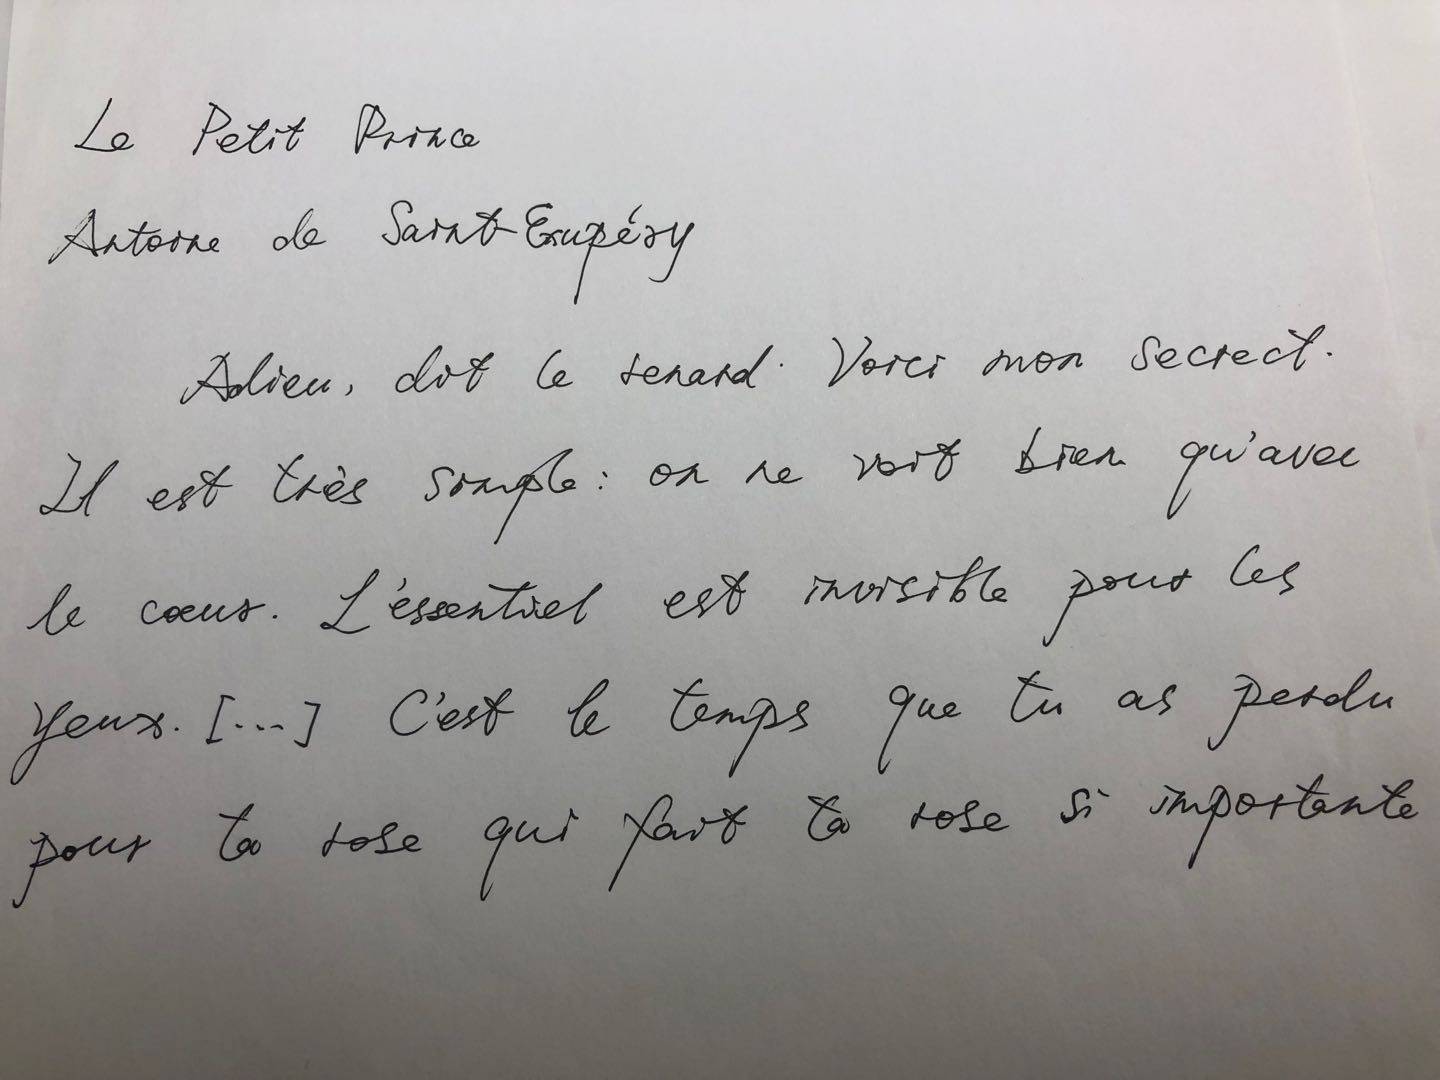 Le Petit Prince
Antoine de Saint-Exupéry
Adieu, dit le renard. Voici mon secrect.
Il est très simple : on ne voit bien qu'avec
le cœur. L'éssentiel est invisible pour les
yeux. [...] C'est le temps que tu as perdu
pour ta rose qui fait ta rose si importante